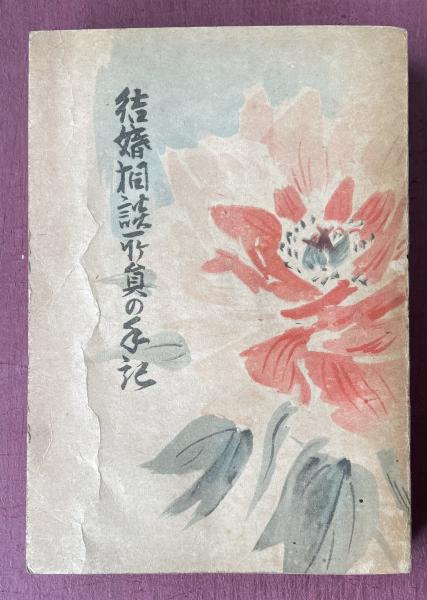 結婚相談所員の手記